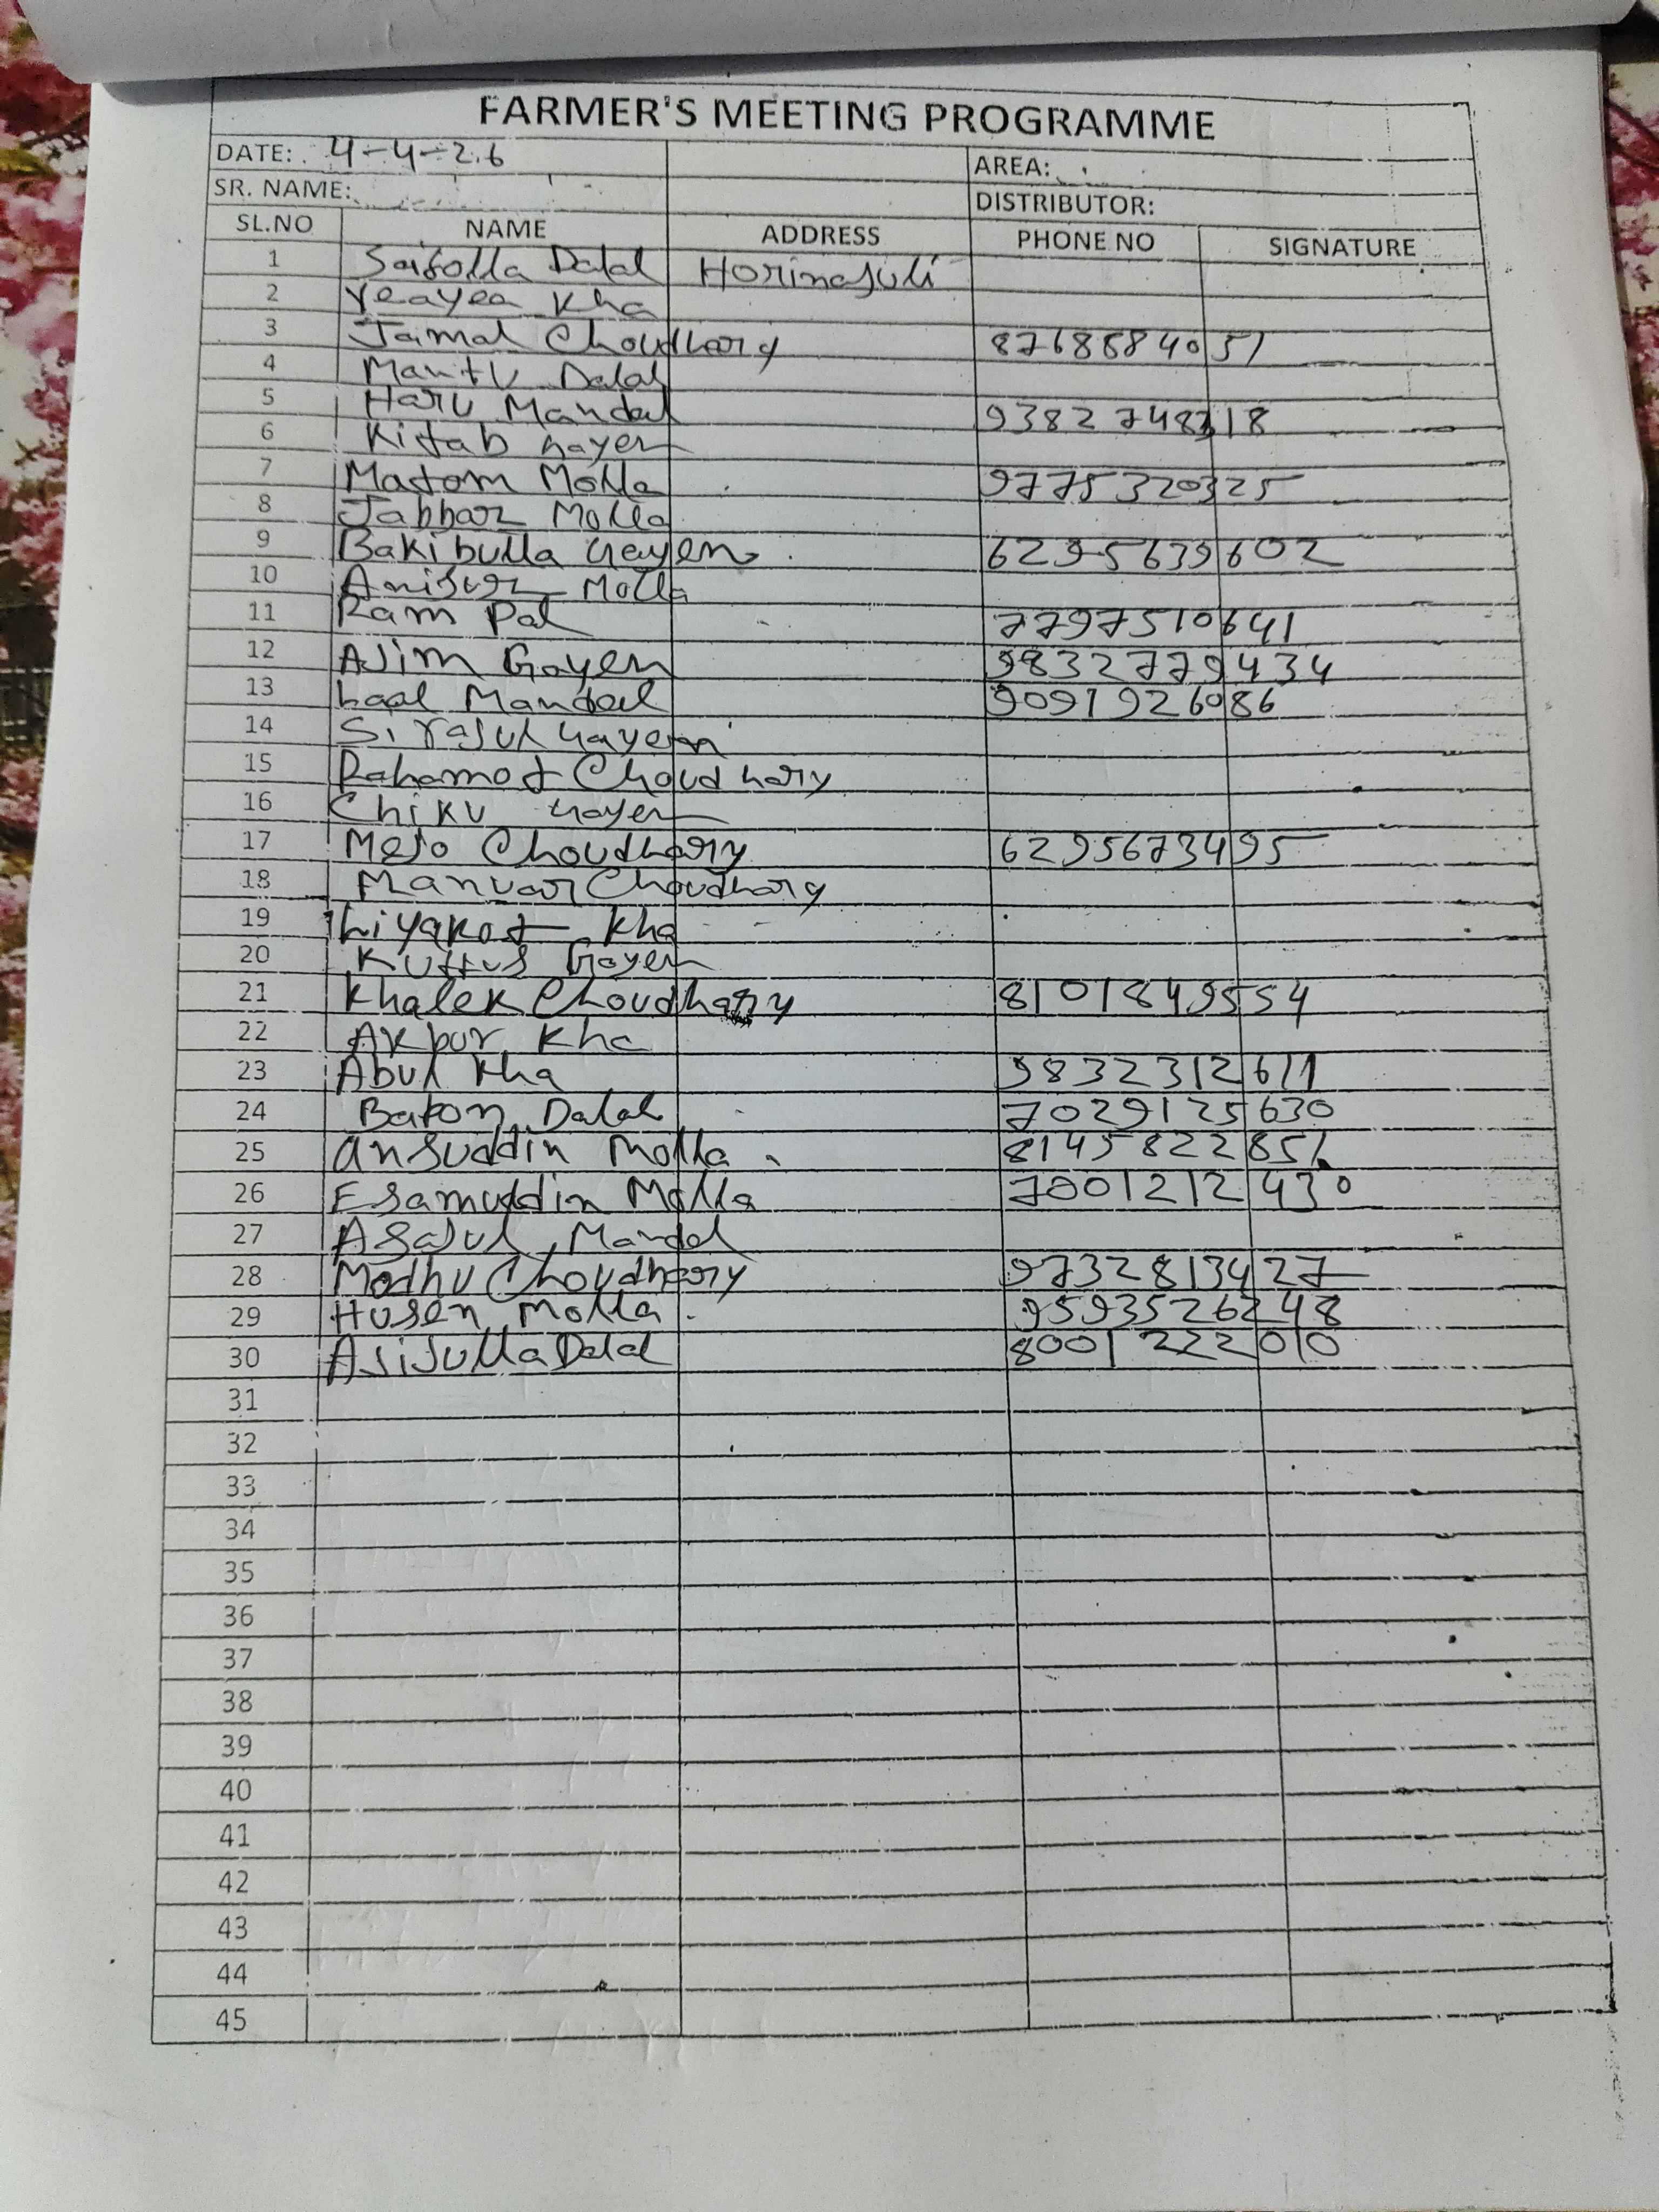 FARMER'S MEETING PROGRAMME
DATE: 4-4-26 AREA:
SR. NAME: DISTRIBUTOR:
SL.NO NAME ADDRESS PHONE NO SIGNATURE
1 Saifolla Dalal Horinajuli
2 Yeayea Kha
3 Jamal Choudhary 8768884051
4 Mantu Dalal
5 Haru Mandal 9382748318
6 Kitab Gayen
7 Matom Molla 9775320325
8 Jabbar Molla
9 Bakibulla Gayen 6295639602
10 Anisur Molla
11 Ram Pal 7797510641
12 Ajim Gayen 9832779434
13 Laal Mandal 9091926086
14 Sirajul Gayen
15 Rahamot Choudhary
16 Chiku Gayen
17 Mejo Choudhary 6295673495
18 Manuar Choudhary
19 Liyakot Kha
20 Kuttus Gayen
21 Khalek Choudhary 8101849554
22 Akbur Kha
23 Abul Kha 9832312611
24 Baton Dalal 7029125630
25 Ansuddin Molla 8145822851
26 Esamuddin Molla 7001212430
27 Asajul Mandal
28 Modhu Choudhary 9732813427
29 Husen Molla 9593526248
30 Ajijulla Dalal 8001222010
31
32
33
34
35
36
37
38
39
40
41
42
43
44
45